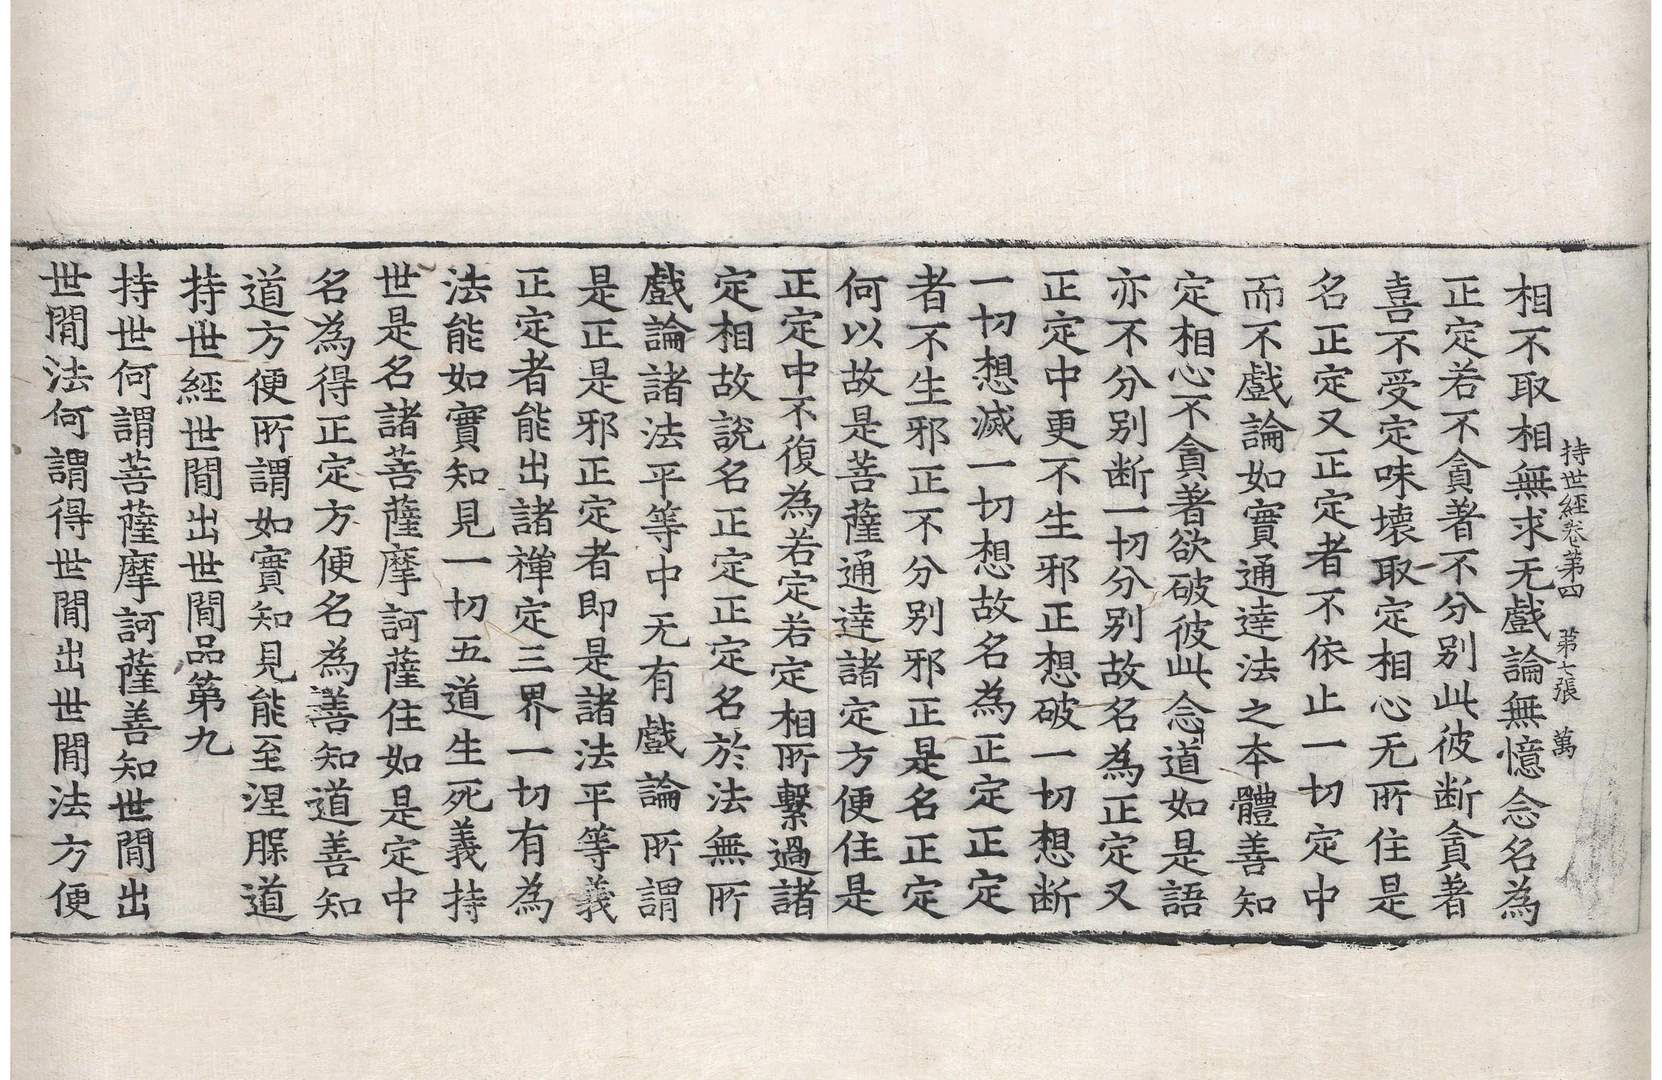 持世經卷第四　第七張　萬
相不取相無求无戲論無憶念名為
正定若不貪著不分別此彼断貪著
喜不受定味壞取定相心无所住是
名正定又正定者不依止一切定中
而不戲論如實通達法之本體善知
定相心不貪著欲破彼此念道如是語
亦不分別断一切分別故名為正定又
正定中更不生邪正想破一切想断
一切想滅一切想故名為正定正定
者不生邪正不分別邪正是名正定
何以故是菩薩通達諸定方便住是
正定中不復為若定若定相所繫過諸
定相故說名正定正定名於法無所
戲論諸法平等中无有戲論所謂
是正是邪正定者即是諸法平等義
正定者能出諸禪定三界一切有為
法能如實知見一切五道生死義持
世是名諸菩薩摩訶薩住如是定中
名為得正定方便名為善知道善知
道方便所謂如實知見能至涅槃道
持世經世閒出世閒品第九
持世何謂菩薩摩訶薩善知世閒出
世閒法何謂得世閒出世閒法方便